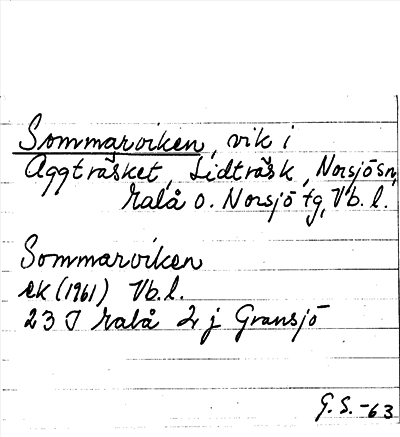 Sommarviken, vik i
Aggträsket, Lidträsk, Norsjö sn,
Malå o. Norsjö tg, Vb. l.
Sommarviken
ek (1961) Vb. l.
23 J Malå 2 j Gransjö
G. S. -63